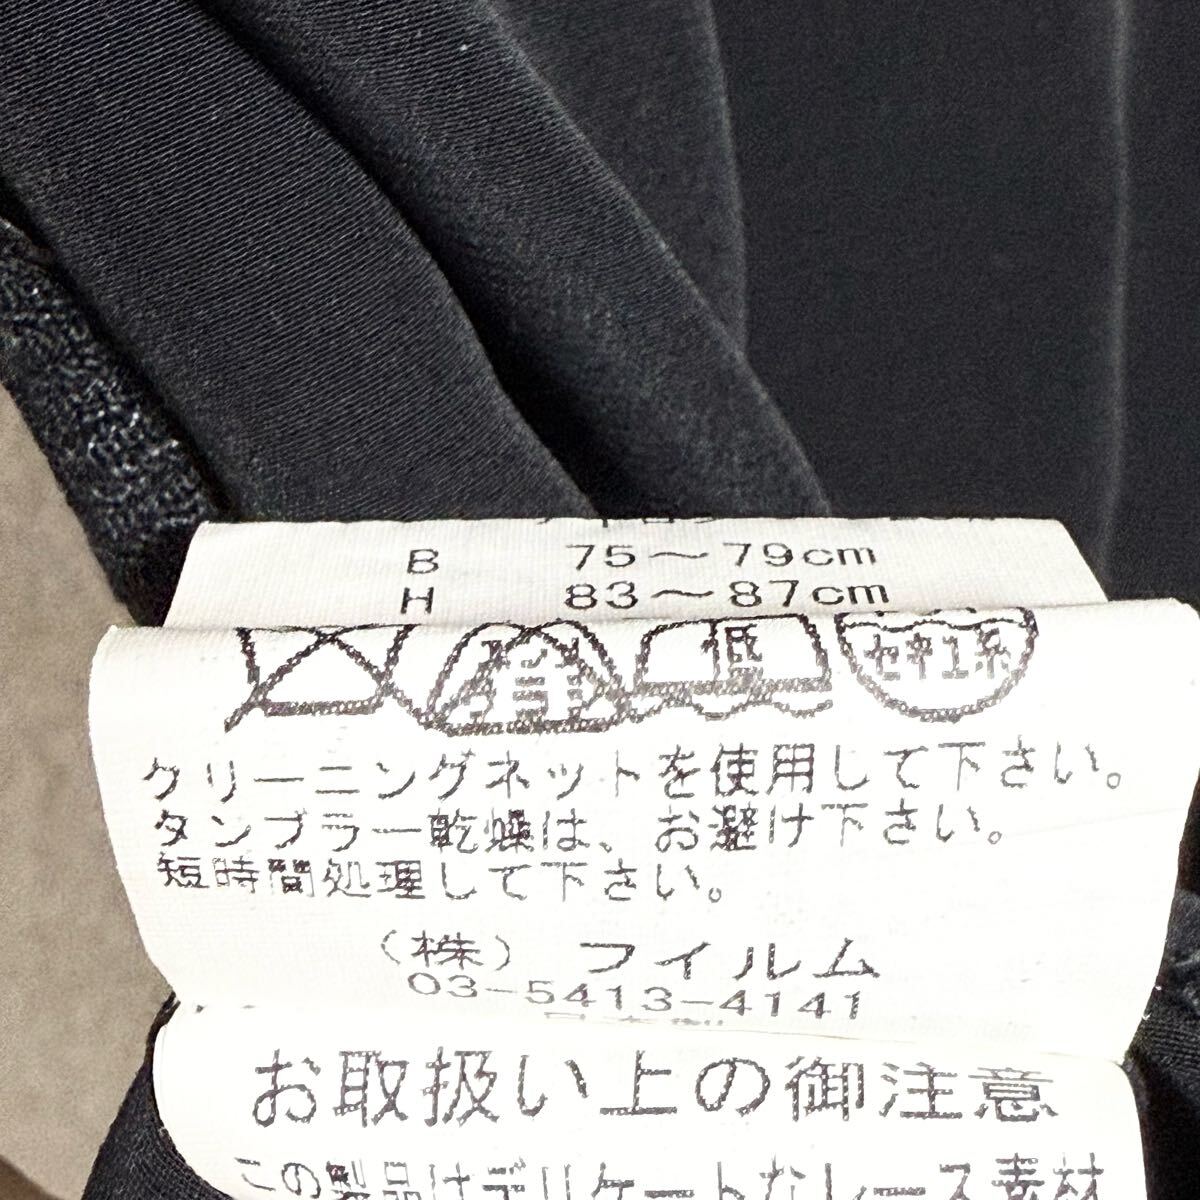 B 75～79cm
H 83～87cm
低 セキユ系
クリーニングネットを使用して下さい。
タンブラー乾燥は、お避け下さい。
短時間処理して下さい。
（株） フイルム
03-5413-4141
お取扱い上の御注意
この製品はデリケートなレース素材